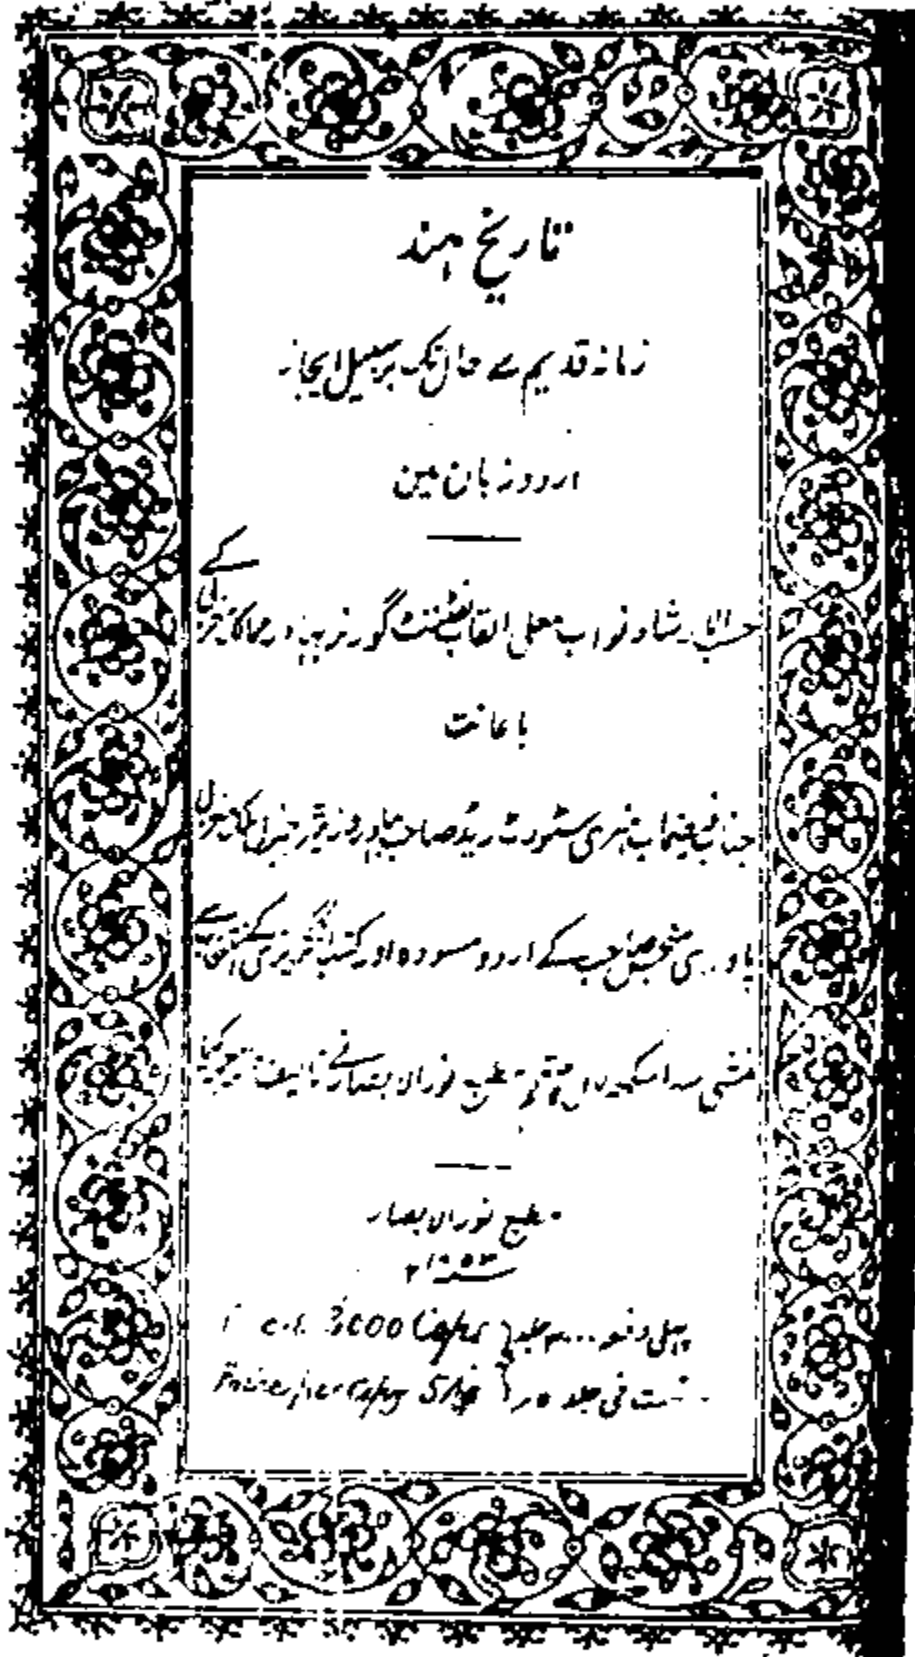 تاریخ ہند
زمانہ قدیم سے حال تک بر سبیل ایجاز
اردو زبان مین
حسب الارشاد نواب معلی القاب لفٹننٹ گورنر بہادر ممالک مغربی کے
باعانت
جناب فیضماب ہنری سٹورٹ ریڈ صاحب بہادر وزیٹر جنرل ممالک مغربی
پادری صاحب کے اردو مسودہ اور کتب انگریزی کے سے
منشی سدا سکھ لال مہتمم مطبع نور الابصار نے تالیف
مطبع نور الابصار
سنہ ء
پہلی دفعہ ۳۰۰۰ جلد } 3000 Copies
قیمت فی جلد ۵ ر } Price per Copy 5 As